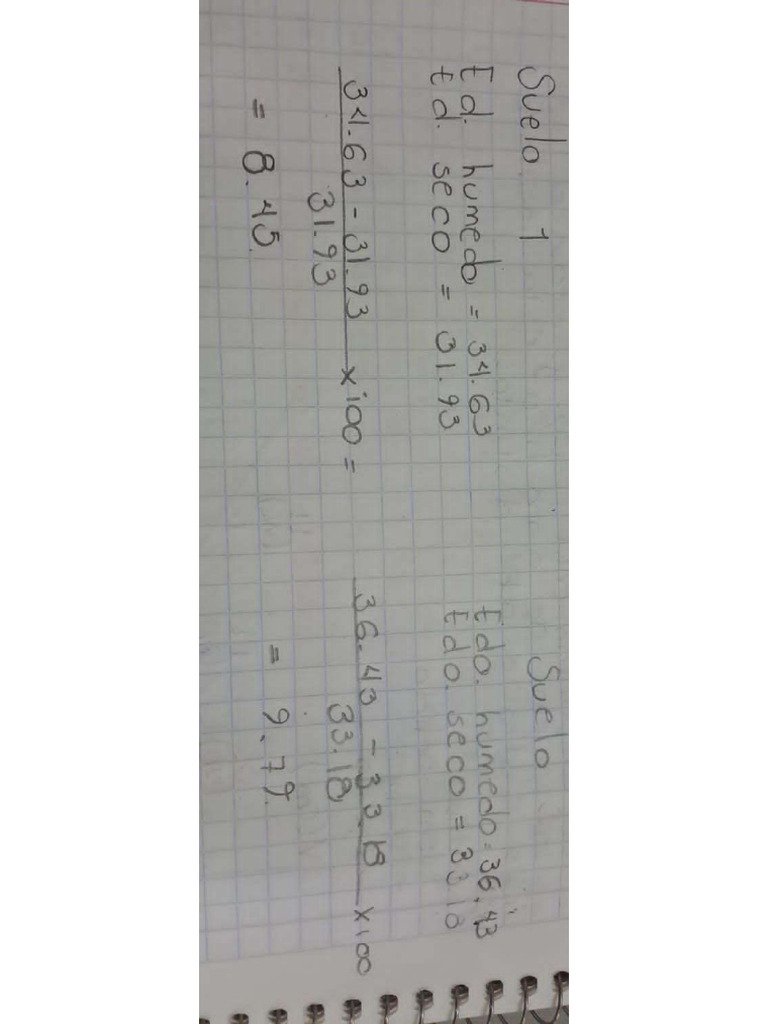 Suelo 1
Ed. humedo = 34.63
Ed. seco = 31.93
34.63 - 31.93 x 100 =
31.93
= 8.45
Suelo
Edo. humedo = 36.43
Edo. seco = 33.18
36.43 - 33.18 x 100
33.18
= 9.79